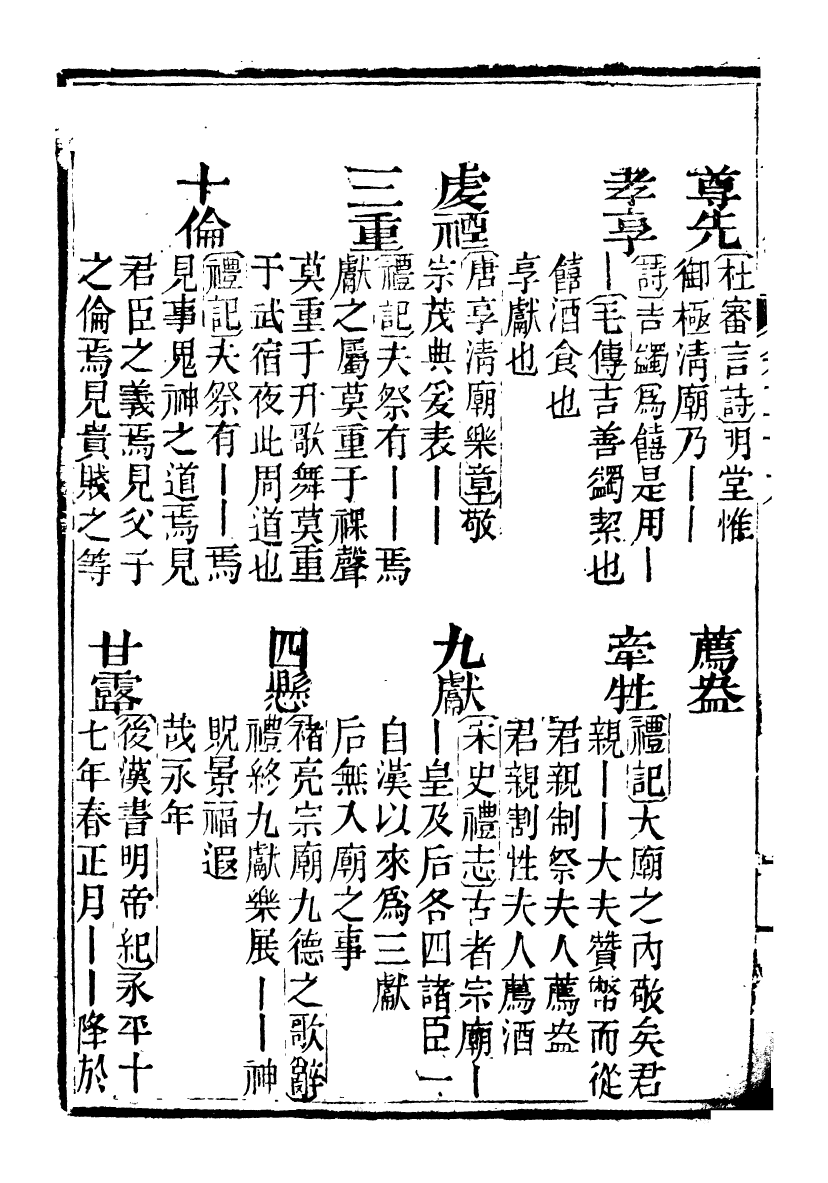 尊先
杜審言詩明堂惟
御極清廟乃||
孝享
詩吉蠲爲饎是用|
|毛傳吉善蠲絜也
饎酒食也
享獻也
虔禋
唐享清廟樂章敬
宗茂典爰表||
三重
禮記夫祭有||焉
獻之屬莫重于祼聲
莫重于升歌舞莫重
于武宿夜此周道也
十倫
禮記夫祭有||焉
見事鬼神之道焉見
君臣之義焉見父子
之倫焉見貴賤之等
薦盎
牽牲
禮記大廟之內敬矣君
親||大夫贊幣而從
君親制祭夫人薦盎
君親割牲夫人薦酒
九獻
宋史禮志古者宗廟|
|皇及后各四諸臣一
自漢以來爲三獻
后無入廟之事
四懸
褚亮宗廟九德之歌辭
禮終九獻樂展||神
貺景福遐
哉永年
甘露
後漢書明帝紀永平十
七年春正月||降於